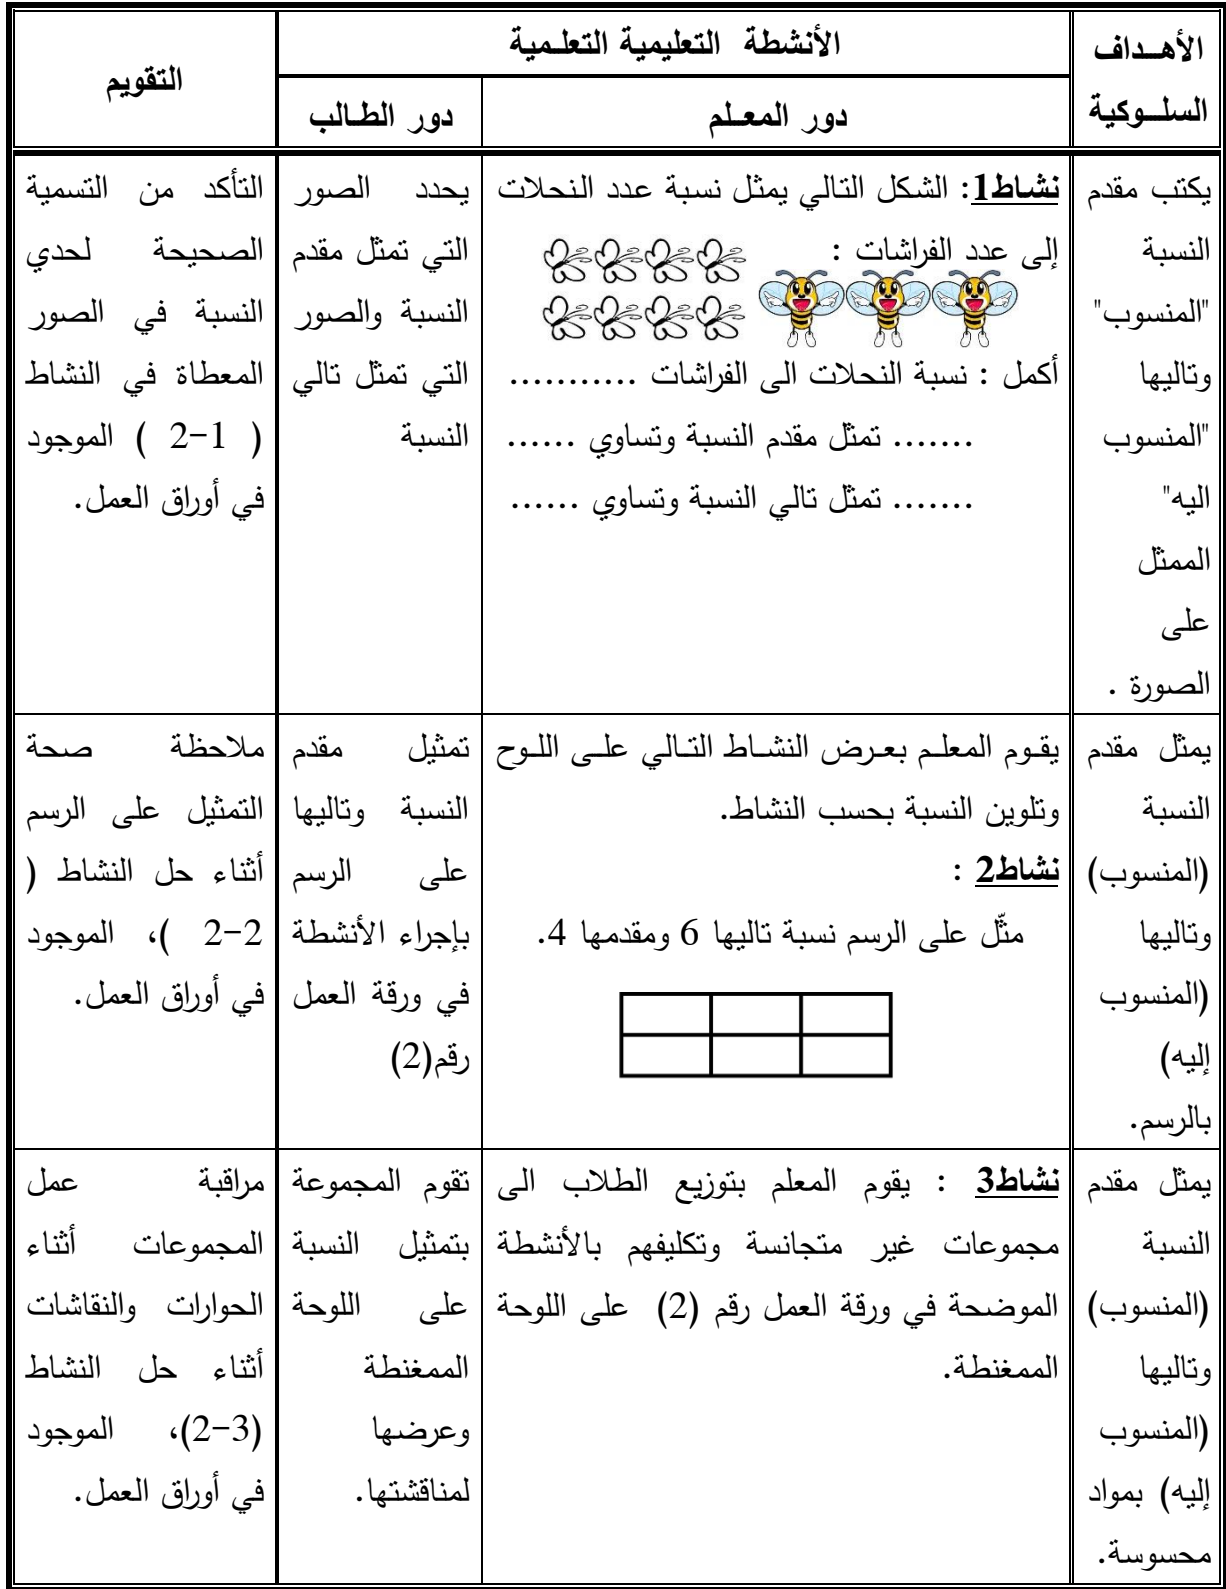 الأهــداف
السلــوكية
الأنشطة التعليمية التعلـمية
دور المعـلم
دور الطـالب
التقويم
يكتب مقدم
النسبة
"المنسوب"
وتاليها
"المنسوب
اليه"
الممثل
على
الصورة .
نشاط1: الشكل التالي يمثل نسبة عدد النحلات
إلى عدد الفراشات :
أكمل : نسبة النحلات الى الفراشات ...........
....... تمثل مقدم النسبة وتساوي ......
....... تمثل تالي النسبة وتساوي ......
يحدد الصور
التي تمثل مقدم
النسبة والصور
التي تمثل تالي
النسبة
التأكد من التسمية
الصحيحة لحدي
النسبة في الصور
المعطاة في النشاط
( 2-1 ) الموجود
في أوراق العمل.
يمثل مقدم
النسبة
(المنسوب)
وتاليها
(المنسوب
إليه)
بالرسم.
يقـوم المعلـم بعـرض النشـاط التـالي علـى اللـوح
وتلوين النسبة بحسب النشاط.
نشاط2 :
مثّل على الرسم نسبة تاليها 6 ومقدمها 4.
تمثيل مقدم
النسبة وتاليها
على الرسم
بإجراء الأنشطة
في ورقة العمل
رقم(2)
ملاحظة صحة
التمثيل على الرسم
أثناء حل النشاط (
2-2 )، الموجود
في أوراق العمل.
يمثل مقدم
النسبة
(المنسوب)
وتاليها
(المنسوب
إليه) بمواد
محسوسة.
نشاط3 : يقوم المعلم بتوزيع الطلاب الى
مجموعات غير متجانسة وتكليفهم بالأنشطة
الموضحة في ورقة العمل رقم (2) على اللوحة
الممغنطة.
تقوم المجموعة
بتمثيل النسبة
على اللوحة
الممغنطة
وعرضها
لمناقشتها.
مراقبة عمل
المجموعات أثناء
الحوارات والنقاشات
أثناء حل النشاط
(2-3)، الموجود
في أوراق العمل.